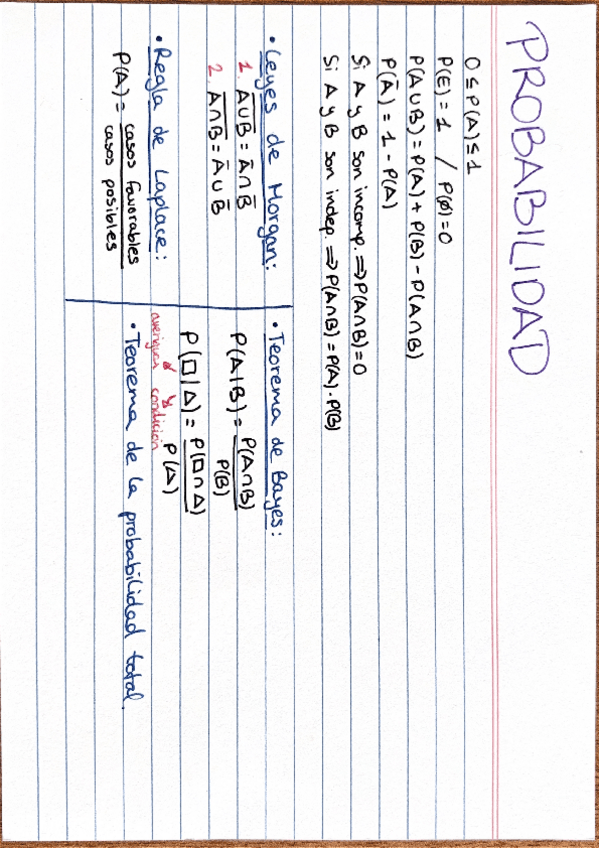 PROBABILIDAD
0 ≤ P(A) ≤ 1
P(E) = 1 / P(ø) = 0
P(A∪B) = P(A) + P(B) - P(A∩B)
P(Ā) = 1 - P(A)
Si A y B son incomp. ⇒ P(A∩B) = 0
Si A y B son indep. ⇒ P(A∩B) = P(A) · P(B)
• Leyes de Morgan:
1. A̅∪̅B̅ = Ā∩B̄
2. A̅∩̅B̅ = Ā∪B̄
• Regla de Laplace:
P(A) = casos favorables
casos posibles
• Teorema de Bayes:
P(A|B) = P(A∩B)
P(B)
P(□|△) = P(□∩△)
P(△)
averiguar condición
• Teorema de la probabilidad total.